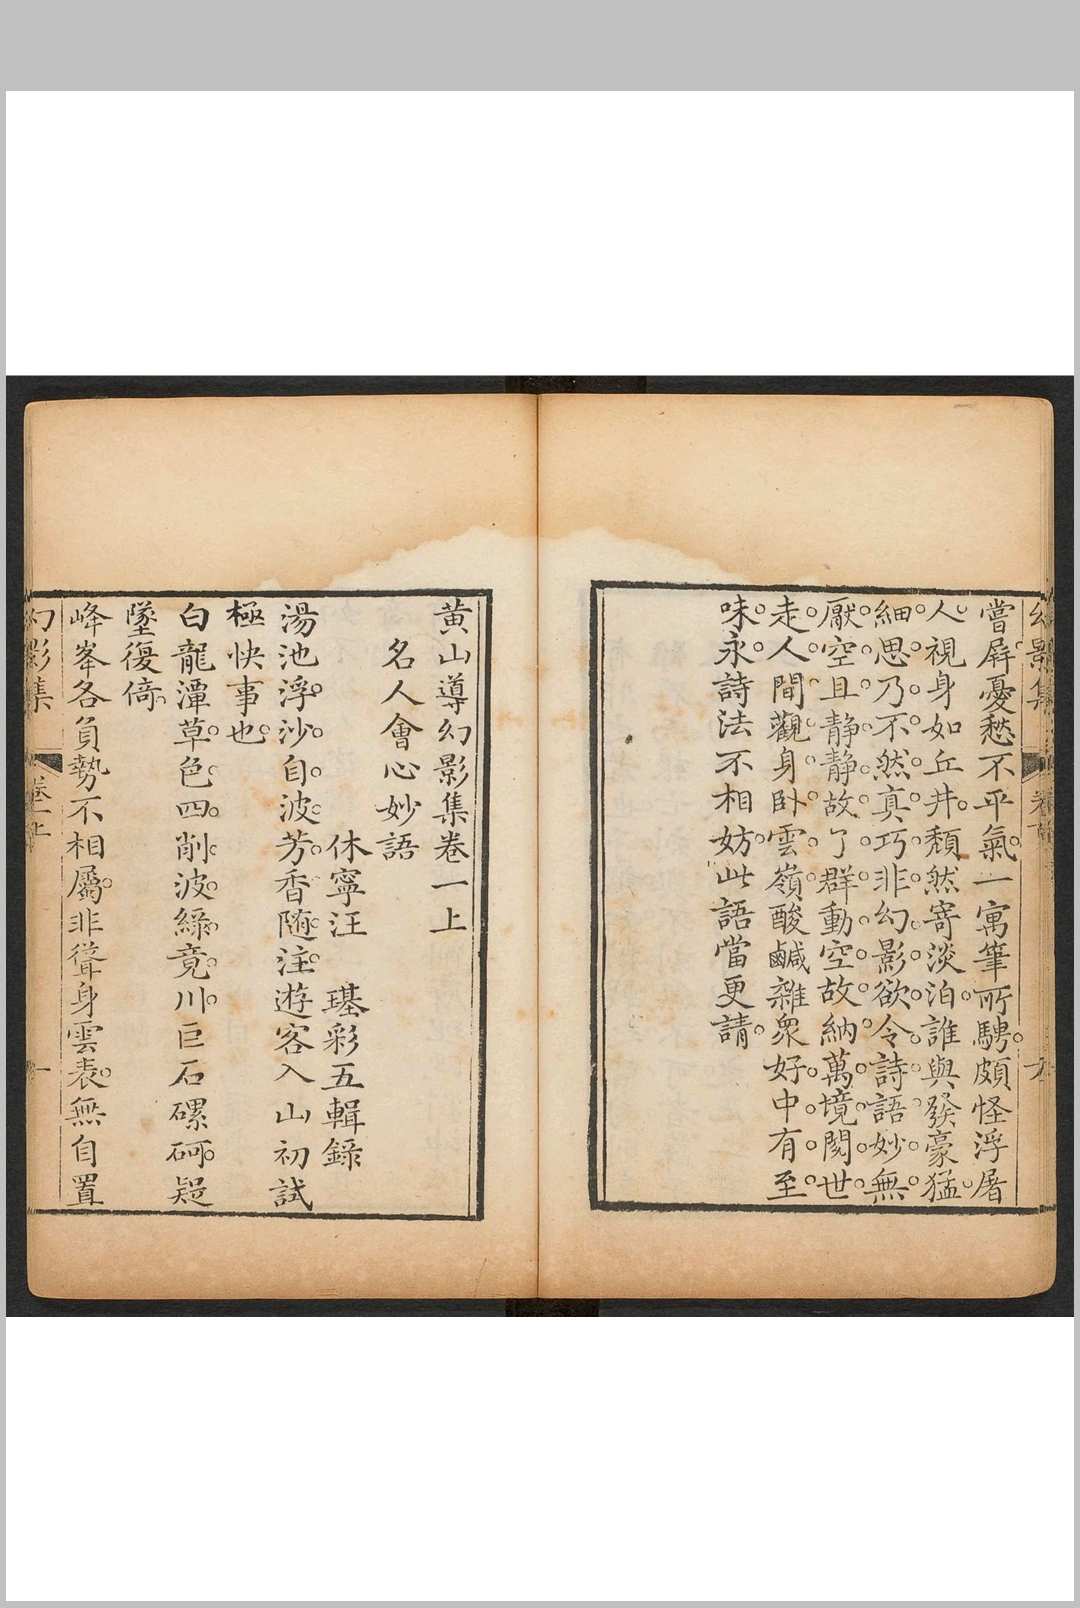 嘗屏憂愁不平氣一寓筆所騁頗怪浮屠
人視身如丘井頹然寄淡泊誰與發豪猛
細思乃不然真巧非幻影欲令詩語妙無
厭空且静静故了群動空故納萬境閱世
走人間觀身卧雲嶺酸鹹雜衆好中有至
味永詩法不相妨此語當更請
黄山導幻影集卷一上
名人會心妙語
休寧汪　璂彩五輯錄
湯池浮沙自波芳香随注遊客入山初試
極快事也
白龍潭草色四削波綠竟川巨石磥砢疑
墜復倚
峰峯各負勢不相屬非聳身雲表無自置
幻影集
卷一上
一